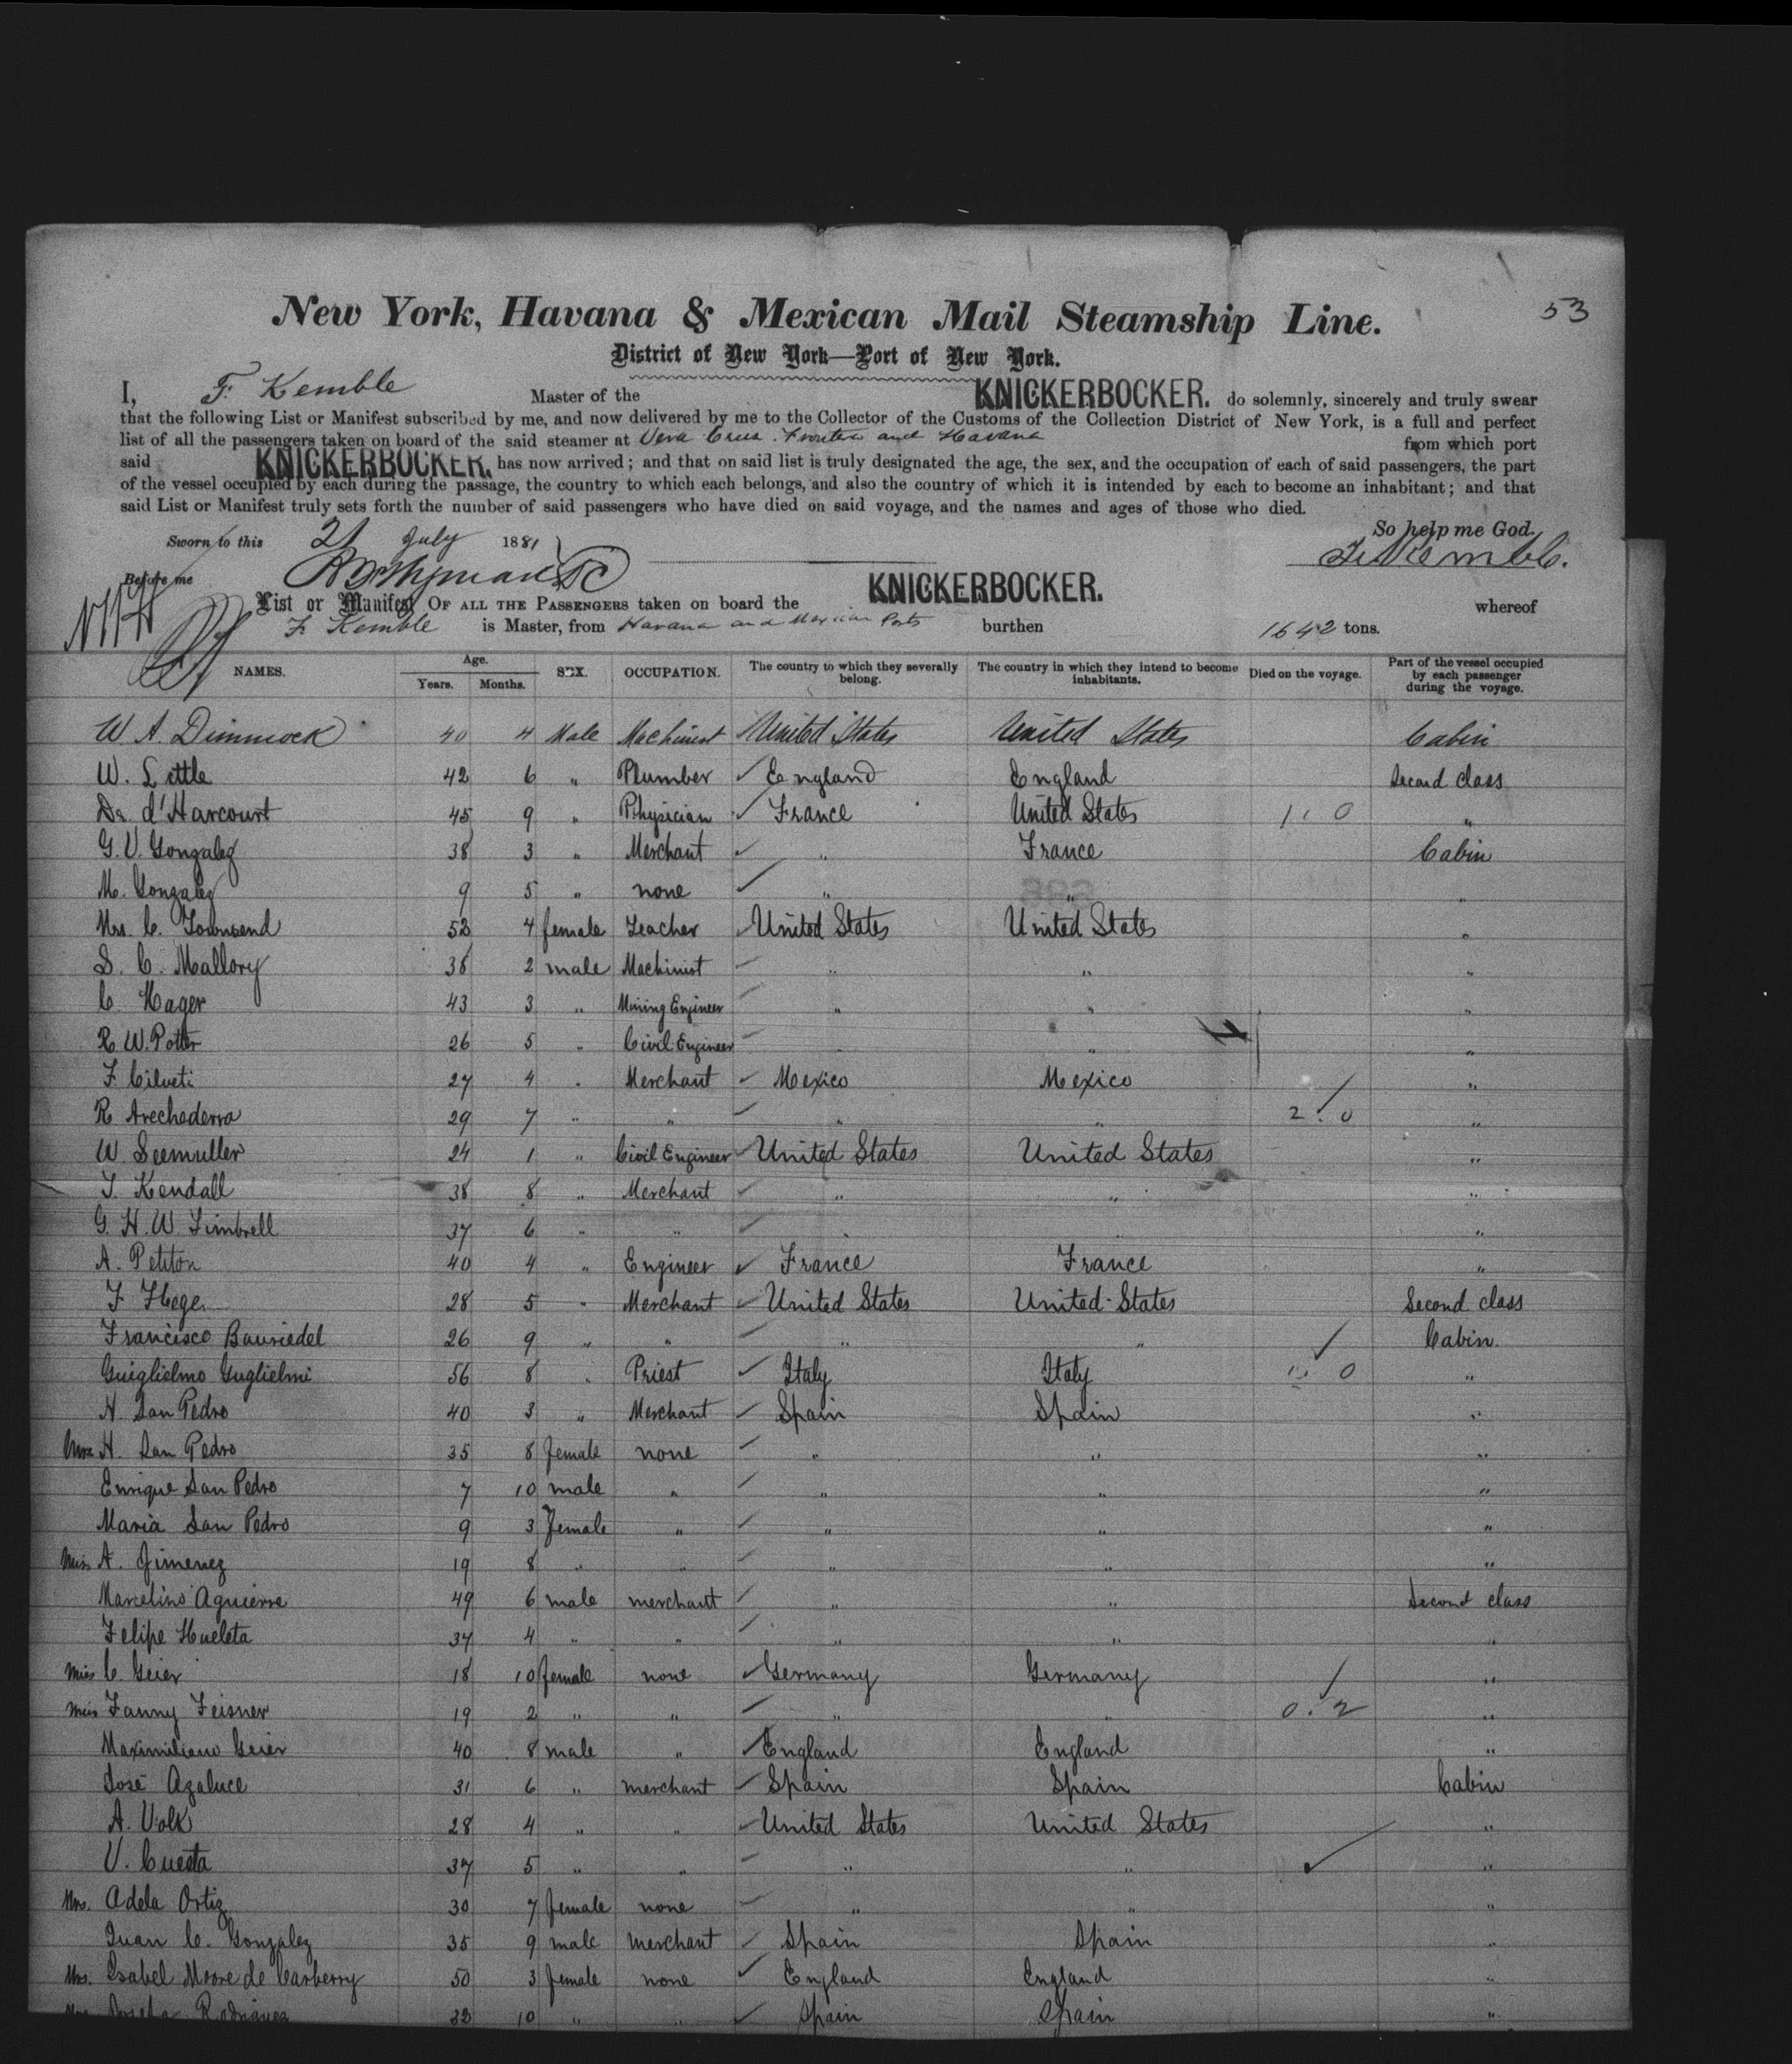 53
New York, Havana & Mexican Mail Steamship Line.
District of New York—Port of New York.
I, F. Kemble Master of the KNICKERBOCKER. do solemnly, sincerely and truly swear
that the following List or Manifest subscribed by me, and now delivered by me to the Collector of the Customs of the Collection District of New York, is a full and perfect
list of all the passengers taken on board of the said steamer at Vera Cruz. Frontera and Havana from which port
said KNICKERBOCKER. has now arrived; and that on said list is truly designated the age, the sex, and the occupation of each of said passengers, the part
of the vessel occupied by each during the passage, the country to which each belongs, and also the country of which it is intended by each to become an inhabitant; and that
said List or Manifest truly sets forth the number of said passengers who have died on said voyage, and the names and ages of those who died.
So help me God.
Sworn to this 21 July 1881 F. Kemble.
Before me
List or Manifest OF ALL THE PASSENGERS taken on board the KNICKERBOCKER. whereof
F. Kemble is Master, from Havana and Mexican Ports burthen 1642 tons.
NAMES. Age. Years. Months. SEX. OCCUPATION. The country to which they severally belong. The country in which they intend to become inhabitants. Died on the voyage. Part of the vessel occupied by each passenger during the voyage.
W. A. Dimmock 40 4 Male Machinist United States United States Cabin
W. Little 42 6 " Plumber England England Second class
Dr. d'Harcourt 45 9 " Physician France United States 1 . 0 "
G. V. Gonzalez 38 3 " Merchant " France Cabin
M. Gonzalez 9 5 " none " " "
Mrs. C. Townsend 52 4 female Teacher United States United States "
S. C. Mallory 38 2 male Machinist " " "
C. Hager 43 3 " Mining Engineer " " "
R. W. Potter 26 5 " Civil Engineer " " "
F. Cilveti 27 4 " Merchant Mexico Mexico "
R Arechederra 29 7 " " " " 2 . 0 "
W. Seemuller 24 1 " Civil Engineer United States United States "
T. Kendall 38 8 " Merchant " " "
G. H. W. Timbrell 37 6 " " " " "
A. Petiton 40 4 " Engineer France France "
F. Hege 28 5 " Merchant United States United States Second class
Francisco Bauriedel 26 9 " " " " Cabin.
Guiglielmo Guglielmi 56 8 " Priest Italy Italy 1 . 0 "
H. San Pedro 40 3 " Merchant Spain Spain "
Mrs H. San Pedro 35 8 female none " " "
Enrique San Pedro 7 10 male " " " "
Maria San Pedro 9 3 female " " " "
Miss A. Jimenez 19 8 " " " " "
Marcelino Aguierre 49 6 male merchant " " Second class
Felipe Hueleta 37 4 " " " " "
Miss C. Geier 18 10 female none Germany Germany "
Miss Fanny Feisner 19 2 " " " " 0 . 2 "
Maximiliano Geier 40 8 male " England England "
José Azaluce 31 6 " merchant Spain Spain Cabin
A. Volk 28 4 " " United States United States "
V. Cuesta 37 5 " " " " "
Mrs. Adela Ortiz 30 7 female none " " "
Juan C. Gonzalez 35 9 male Merchant Spain Spain "
Mrs. Isabel Moore de Carberry 50 3 female none England England "
Rodriguez 32 10 " " Spain Spain "